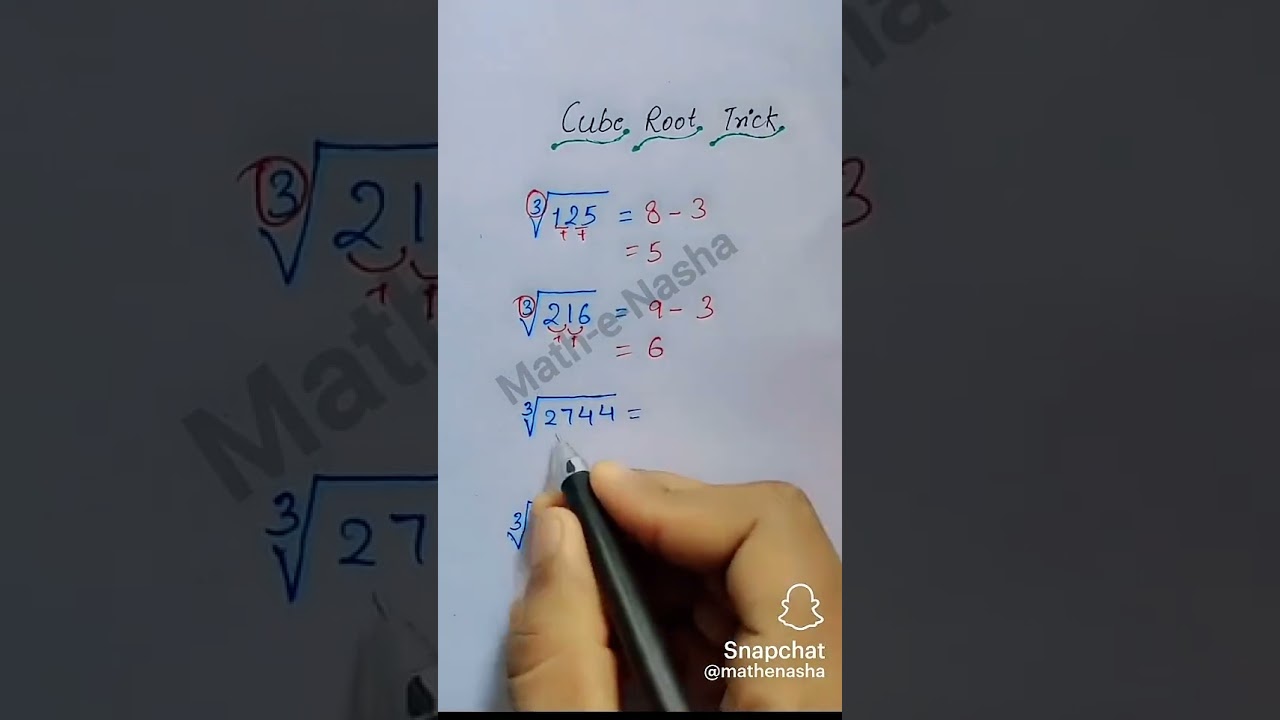 Cube Root Trick
∛125 = 8 - 3
+ +
= 5
∛216 = 9 - 3
+ +
= 6
∛2744 =
3
Math-e-Nasha
Snapchat
@mathenasha